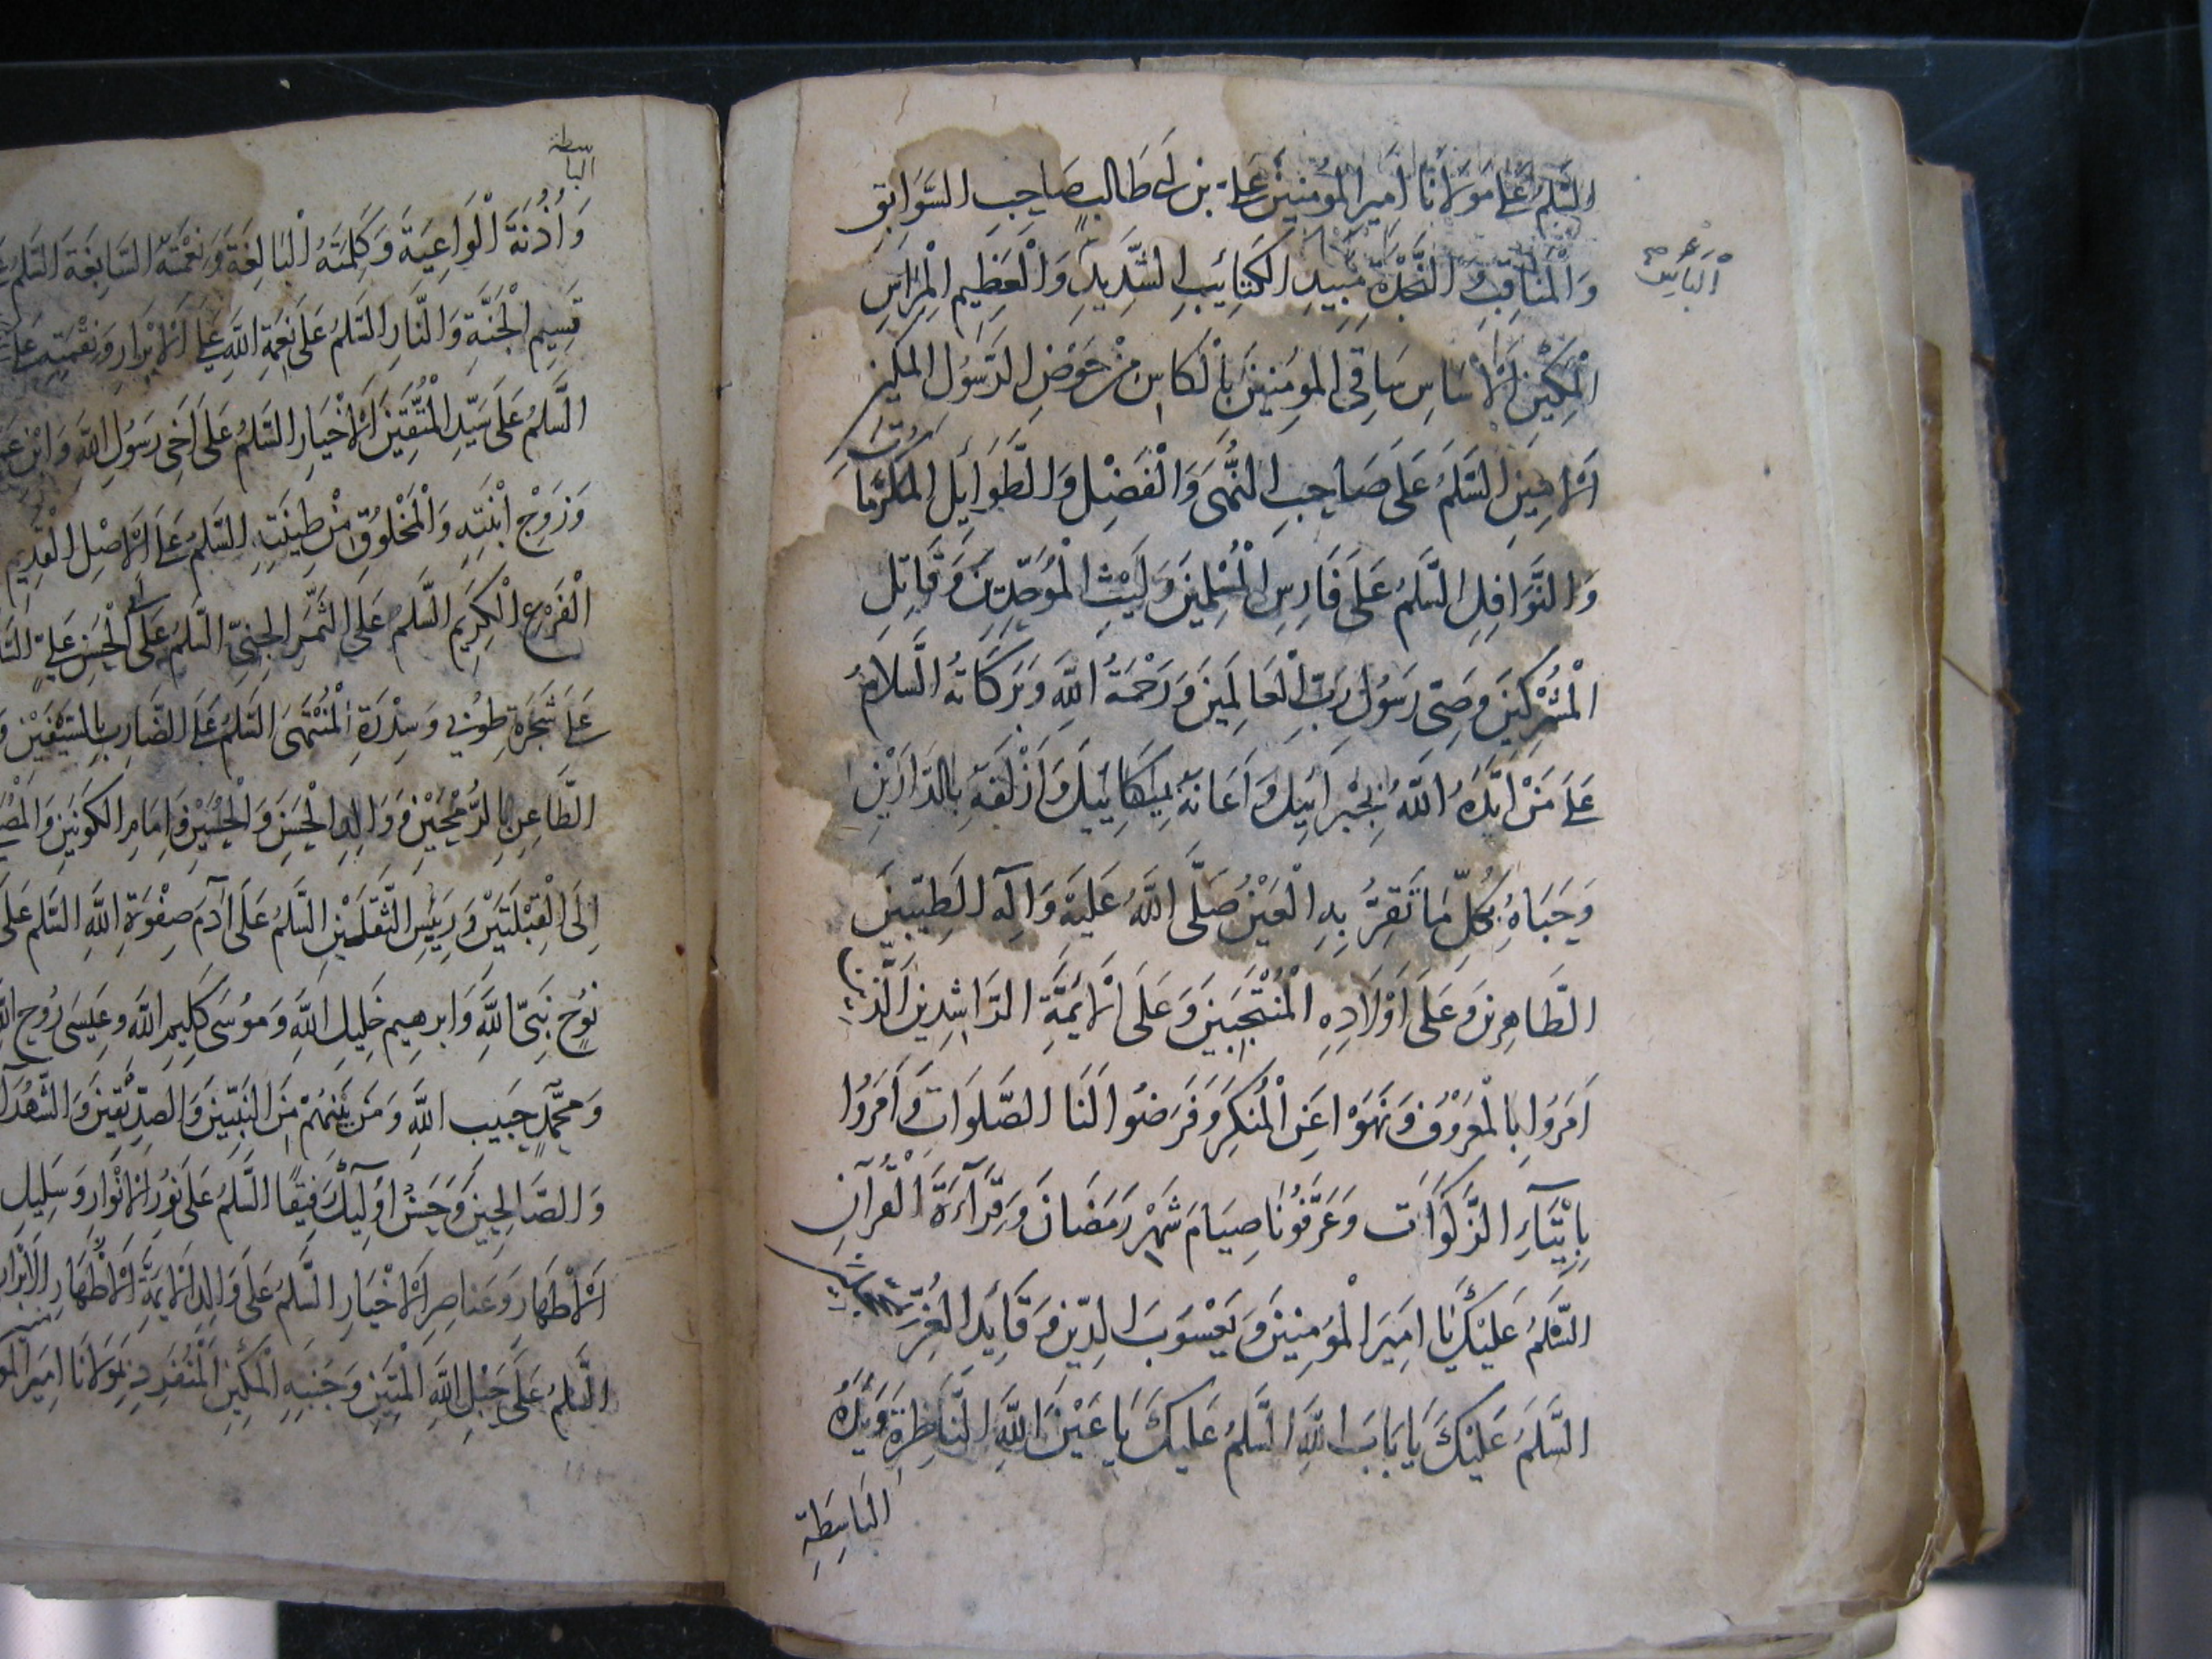 السَّلمُ عَلَى مَوْلَانَا اَمِيرِ الْمُؤمِنِينَ عَلِيّ بْنِ اَبِي طَالِبٍ صَاحِبِ السَّوَابِقِ
وَالْمَنَاقِبِ وَ النَّجْدَةِ مُبِيدِ الْكَتَائِبِ الشَّدِيدِ وَالْعَظِيمِ الْمِرَاسِ
الْبَاسِ
الْمَكِينِ الْاَسَاسِ سَاقِي الْمُؤمِنِينَ بِالْكَاسِ مِنْ حَوْضِ الرَّسُولِ الْمَكِينِ
الْاَمِينِ السَّلَمُ عَلَى صَاحِبِ النُّهَى وَالْفَضْلِ وَالطَّوَايِلِ وَالْمَكْرُمَاتِ
وَالنَّوَافِلِ السَّلمُ عَلَى فَارِسِ الْمُسْلِمِينَ وَلَيْثِ الْمُوَحِّدِينَ وَقَاتِلِ
الْمُشْرِكِينَ وَصِيِّ رَسُولِ رَبِّ الْعَالَمِينَ وَرَحْمَةُ اللَّهِ وَبَرَكَاتُهُ السَّلَامُ
عَلَى مَنْ اَيَّدَهُ اللَّهُ بِجَبْرَائِيلَ وَاَعَانَهُ بِمِيكَائِيلَ وَاَزْلَفَهُ بِالدَّارَيْنِ
وَحَبَاهُ بِكُلِّ مَا تَقِرُّ بِهِ الْعَيْنُ صَلَّى اللَّهُ عَلَيْهِ وَآلِهِ الطَّيِّبِينَ
الطَّاهِرِينَ وَعَلَى اَوْلَادِهِ الْمُنْتَجَبِينَ وَعَلَى الْاَئِمَّةِ الرَّاشِدِينَ الَّذِينَ
اَمَرُوا بِالْمَعْرُوفِ وَنَهَوْا عَنِ الْمُنْكَرِ وَفَرَضُوا لَنَا الصَّلَوَاتَ وَاَمَرُوا
بِاِيْتَآءِ الزَّكَوَات وَعَرَّفُونَا صِيَامَ شَهْرِ رَمَضَانَ وَقِرَآءَةَ الْقُرْآنِ
السَّلَمُ عَلَيْكَ يَا اَمِيرَ الْمُؤْمِنِينَ وَيَعْسُوبَ الدِّينِ وَقَائِدَ الْغُرِّ الْمُحَجَّلِينَ
السَّلَمُ عَلَيْكَ يَا بَابَ اللَّهِ السَّلمُ عَلَيْكَ يَا عَيْنَ اللَّهِ النَّاظِرَةِ وَيَدَهُ
الْبَاسِطَةِ
الباسطة
وَاُذُنَهُ الْوَاعِيَةَ وَكَلِمَتَهُ الْبَالِغَةَ وَنِعْمَتَهُ السَّابِغَةَ السَّلمُ
قَسِيمِ الْجَنَّةِ وَالنَّارِ السَّلمُ عَلَى نِعْمَةِ اللَّهِ عَلَى الْاَبْرَارِ وَنِقْمَتِهِ
السَّلمُ عَلَى سَيِّدِ الْمُتَّقِينَ الْاَخْيَارِ السَّلمُ عَلَى اَخِي رَسُولِ اللَّهِ وَابْنِ
وَزَوْجِ ابْنَتِهِ وَالْمَخْلُوقِ مِنْ طِينَتِهِ السَّلمُ عَلَى الْاَصْلِ الْقَدِيمِ
الْفَرْعِ الْكَرِيمِ السَّلمُ عَلَى الثَّمَرِ الْجَنِيِّ السَّلمُ عَلَى اَبِي الْحَسَنِ عَلِيٍّ
عَلَى شَجَرَةِ طُوبَى وَسِدْرَةِ الْمُنْتَهَى السَّلمُ عَلَى الضَّارِبِ بِالسَّيْفَيْنِ
الطَّاعِنِ بِالرُّمْحَيْنِ وَوَالِدِ الْحَسَنِ وَالْحُسَيْنِ وَاِمَامِ الْكَوْنَيْنِ
اِلَى الْقِبْلَتَيْنِ وَرَئِيسِ الثَّقَلَيْنِ السَّلمُ عَلَى آدَمَ صِفْوَةِ اللَّهِ السَّلم عَلَى
نُوحٍ نَبِيِّ اللَّهِ وَاِبْرهِيمَ خَلِيلِ اللَّهِ وَمُوسَى كَلِيمِ اللَّهِ وَعِيسَى رُوحِ
وَمُحَمَّدٍ حَبِيبِ اللَّهِ وَمَنْ بَيْنَهُمْ مِنَ النَّبِيِّينَ وَالصِّدِّيقِينَ وَالشُّهَدَآءِ
وَالصَّالِحِينَ وَحَسُنَ اُولَئِكَ رَفِيقًا السَّلمُ عَلَى نُورِ الْاَنْوَارِ وَسَلِيلِ
الْاَطْهَارِ وَعَنَاصِرِ الْاَخْيَارِ السَّلمُ عَلَى وَالِدِ الْاَئِمَّةِ الْاَطْهَارِ الْاَبْرَارِ
السَّلمُ عَلَى حَبْلِ اللَّهِ الْمَتِينِ وَجَنْبِهِ الْمَكِينِ مَوْلَانَا اَمِيرِ